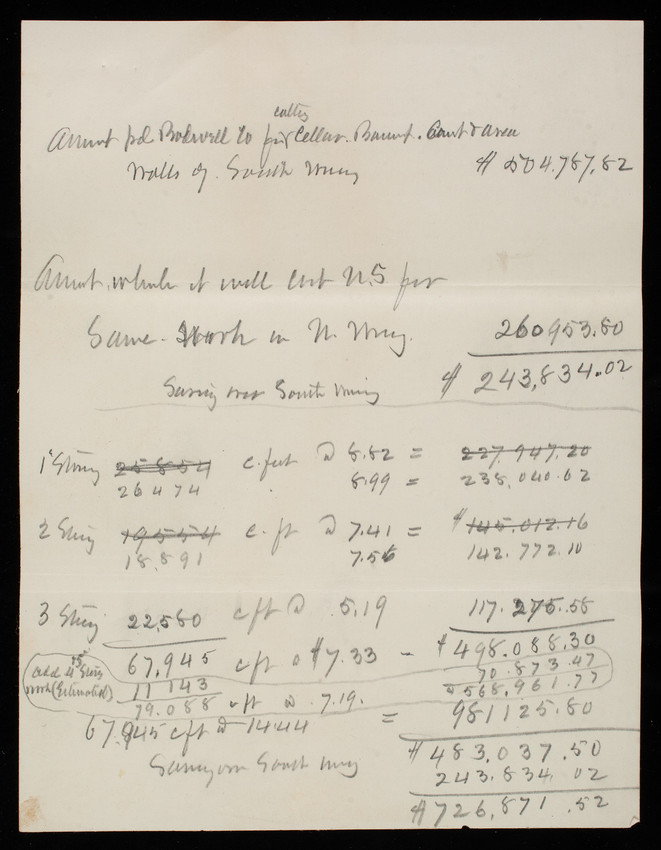 cutting
Amunt pd Bodwell Co for Cellar. Basmt. Court & area
Walls of South Wing $ 504.787,82
Amnt. whole it will cost U.S for
Same Work in N. Wing. 260953.80
Saving over South Wing $ 243,834.02
1 Story 25854 c. feet @ 8.82 = 227,947.20
26474 8.99 = 238,040.62
2 Story 19554 c. ft @ 7.41 = $145.012.16
18.891 7.56 142.772.10
3 Story 22,580 c ft @ 5.19 117.275.58
67,945 c ft @ $7.33 - $498.088.30
add 4 Story 11143 70.873.47
work (Estimated) 79.088 c ft @ 7.19. $568,961.77
67.945 c ft @ 14.44 = 981125.80
$483.037.50
Saving over South Wing 243.834.02
$726,871.52